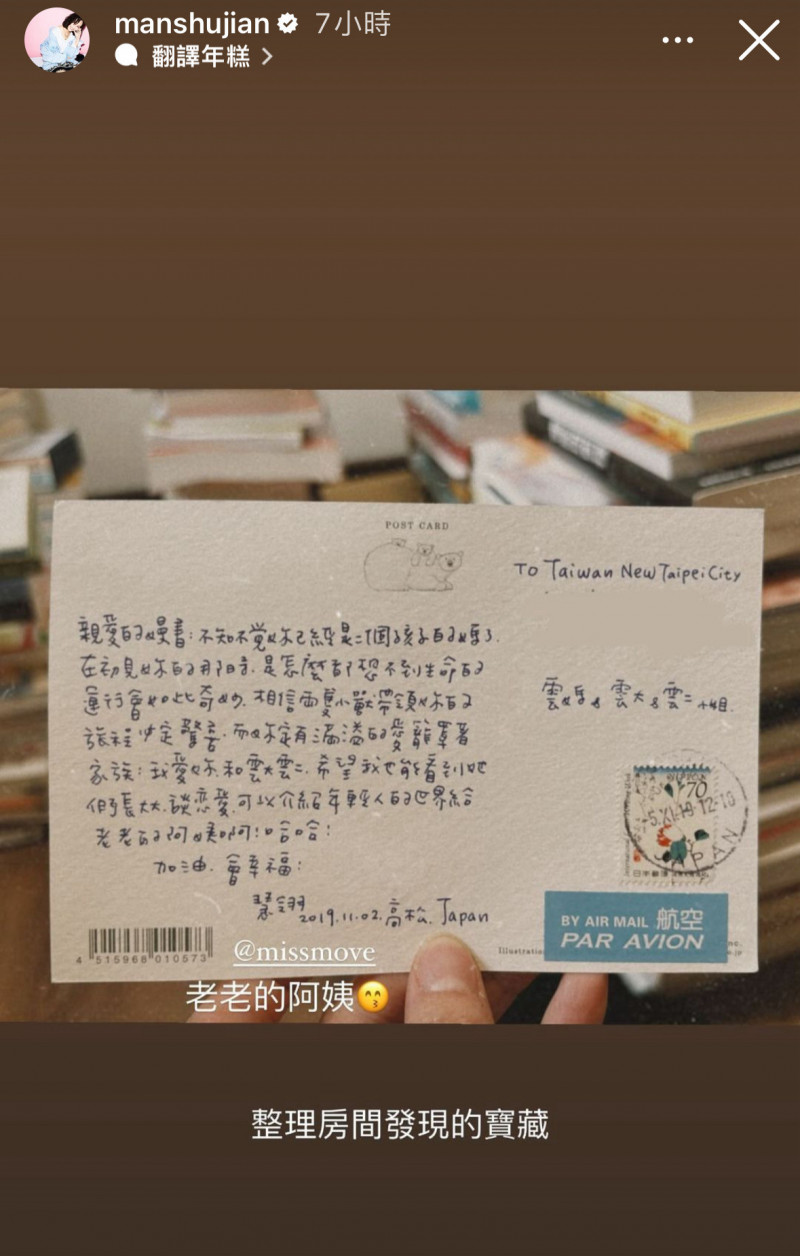 manshujian 7小時
翻譯年糕
POST CARD
TO Taiwan New Taipei City
親愛的嫚書：不知不覺妳已經是二個孩子的媽了.
在初見妳的那時.是怎麼都想不到生命的
運行會如此奇妙.相信兩隻小獸帶領妳的
旅程必定驚喜.而必定有滿溢的愛籠罩著
家族：我愛妳和雲大雲二.希望我也能看到她
們長大.談戀愛.可以介紹年輕人的世界給
老老的阿姨啊！哈哈！
加油.會幸福！
慧翎 2019.11.02.高松.Japan
雲媽&雲大&雲二 小姐.
70
-5.XI.19.12-18
JAPAN
日本郵便
BY AIR MAIL 航空
PAR AVION
4 515968 010573
@missmove
老老的阿姨😙
整理房間發現的寶藏